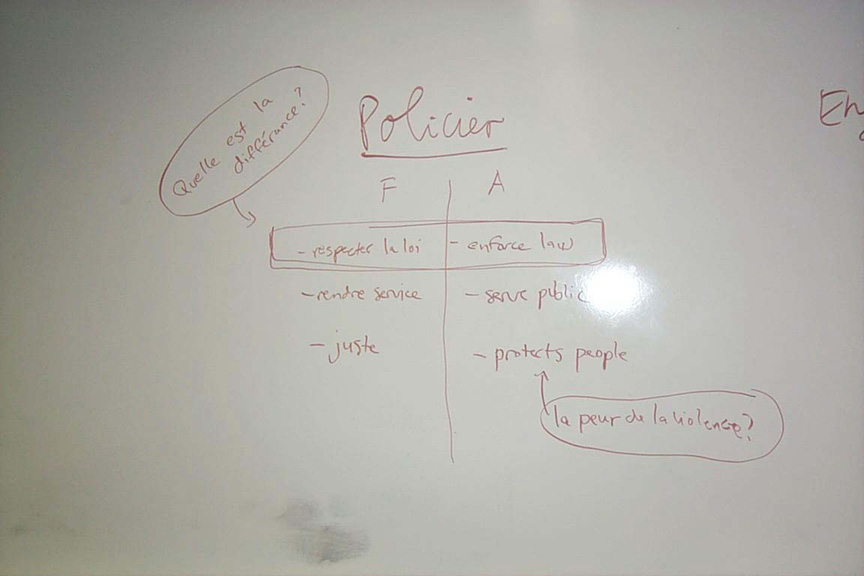 Quelle est la
différance?
Policier
En
F A
- respecter la loi - enforce law
- rendre service - serve public
- juste - protects people
la peur de la violence?